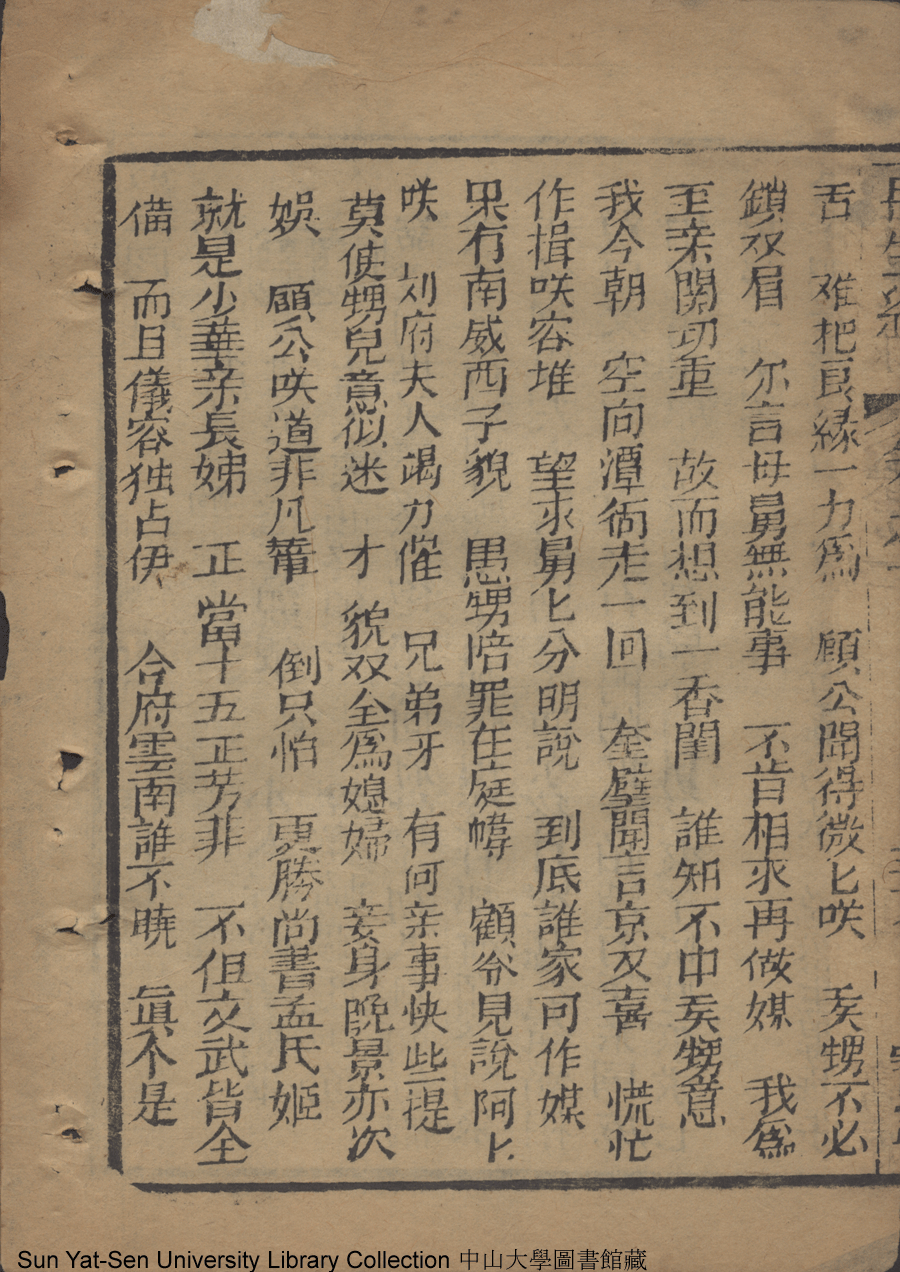 舌 难把良緣一力爲 顧公聞得微匕咲 矣甥不必
鎖双眉 尔言母舅無能事 不肯相求再做媒 我爲
至亲関切重 故而想到一香閨 誰知不中矣甥意
我今朝 空向潭衙走一回 奎璧聞言京又喜 慌忙
作揖咲容堆 望求舅匕分明說 到底誰家可作媒
果有南威西子貌 愚甥陪罪在庭幃 顧爷見說阿匕
咲 刘府夫人竭力催 兄弟牙 有何亲事快些提
莫使甥兒意似迷 才貌双全爲媳婦 妾身晚景亦次
娛 顧公咲道非凡輩 倒只怕 更勝尚書孟氏姬
就是少華亲長姊 正當十五正芳菲 不但文武皆全
備 而且儀容独占伊 合府雲南誰不曉 眞不是
Sun Yat-Sen University Library Collection 中山大學圖書館藏